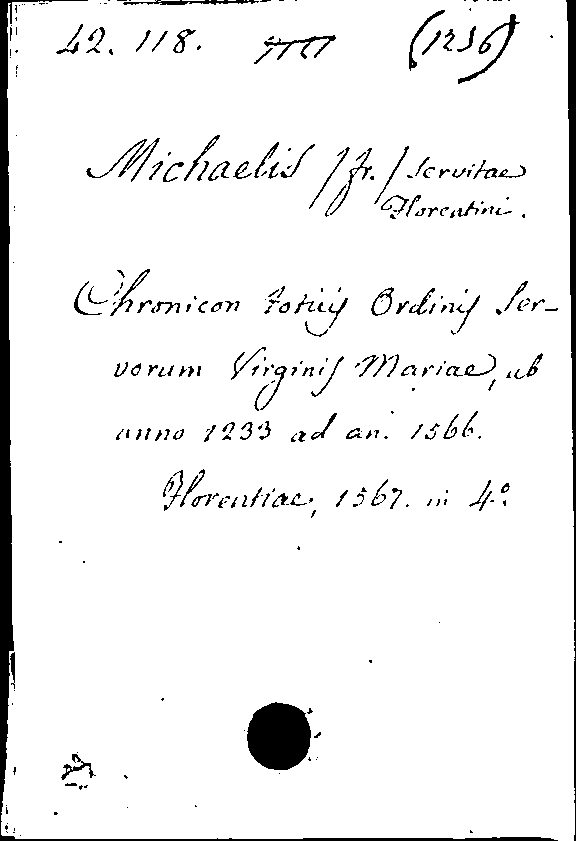 42. 118. (1236)
Michaelis /fr./ Servitae
Florentini.
Chronicon totius Ordinis Ser-
vorum Virginis Mariae, ab
anno 1233 ad an. 1566.
Florentiae, 1567. in 4.º